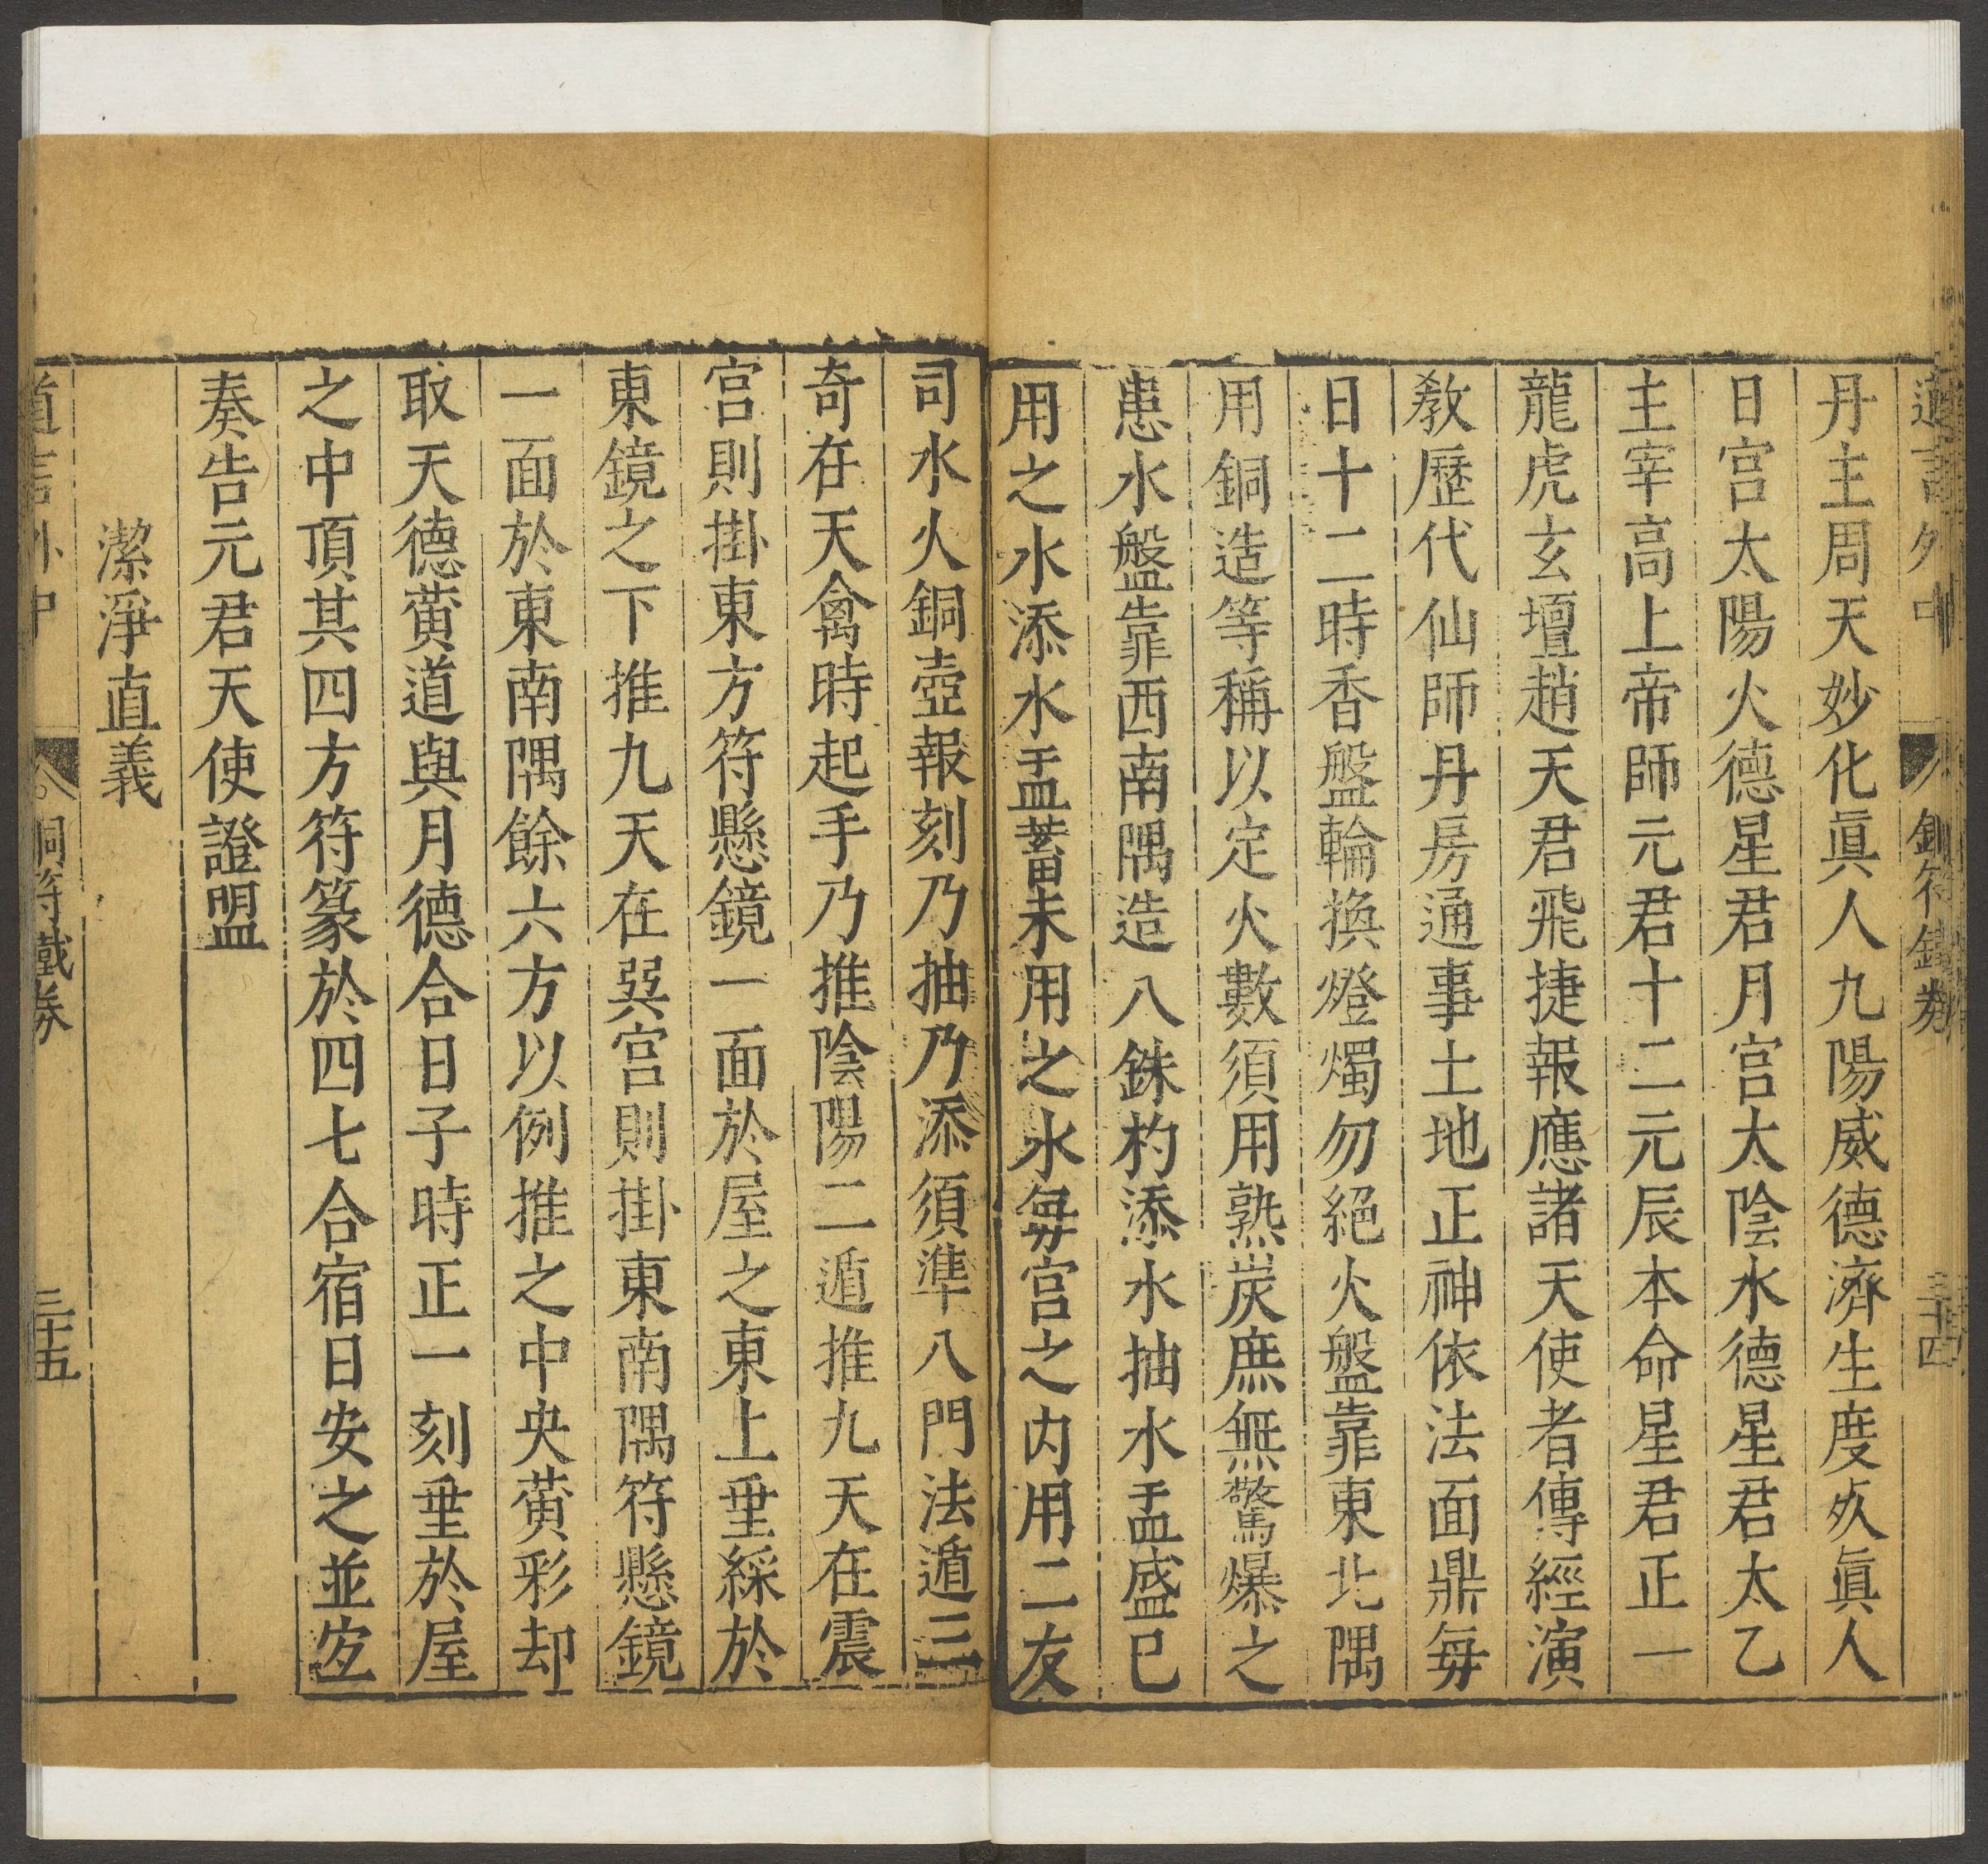 道言外中 銅符鐵券 三十四
丹主周天妙化眞人九陽威德濟生度厄眞人
日宮太陽火德星君月宮太陰水德星君太乙
主宰高上帝師元君十二元辰本命星君正一
龍虎玄壇趙天君飛捷報應諸天使者傳經演
教歷代仙師丹房通事土地正神依法面鼎每
日十二時香盤輪換燈燭勿絕火盤靠東北隅
用銅造等稱以定火數須用熟炭庶無驚爆之
患水盤靠西南隅造八銖杓添水抽水盂盛已
用之水添水盂蓄未用之水每宮之內用二友
司水火銅壺報刻乃抽乃添須準八門法遁三
奇在天禽時起手乃推陰陽二遁推九天在震
宮則掛東方符懸鏡一面於屋之東上垂綵於
東鏡之下推九天在巽宮則掛東南隅符懸鏡
一面於東南隅餘六方以例推之中央黄彩却
取天德黄道與月德合日子時正一刻垂於屋
之中頂其四方符篆於四七合宿日安之並寔
奏告元君天使證盟
潔淨直義
道言外中 銅符鐵券 三十五